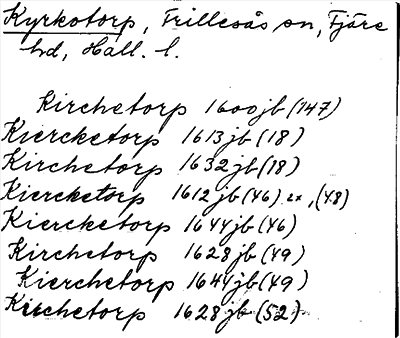 Kyrkotorp, Frillesås sn, Fjäre
hd, Hall. l.
Kirchetorp 1600jb (147)
Kiercketorp 1613jb (18)
Kirchetorp 1632jb (18)
Kiercketorp 1612jb (46) ex, (48)
Kiercketorp 1644jb (46)
Kirchetorp 1628jb (49)
Kierchetorp 1644jb (49)
Kirchetorp 1628jb (52)